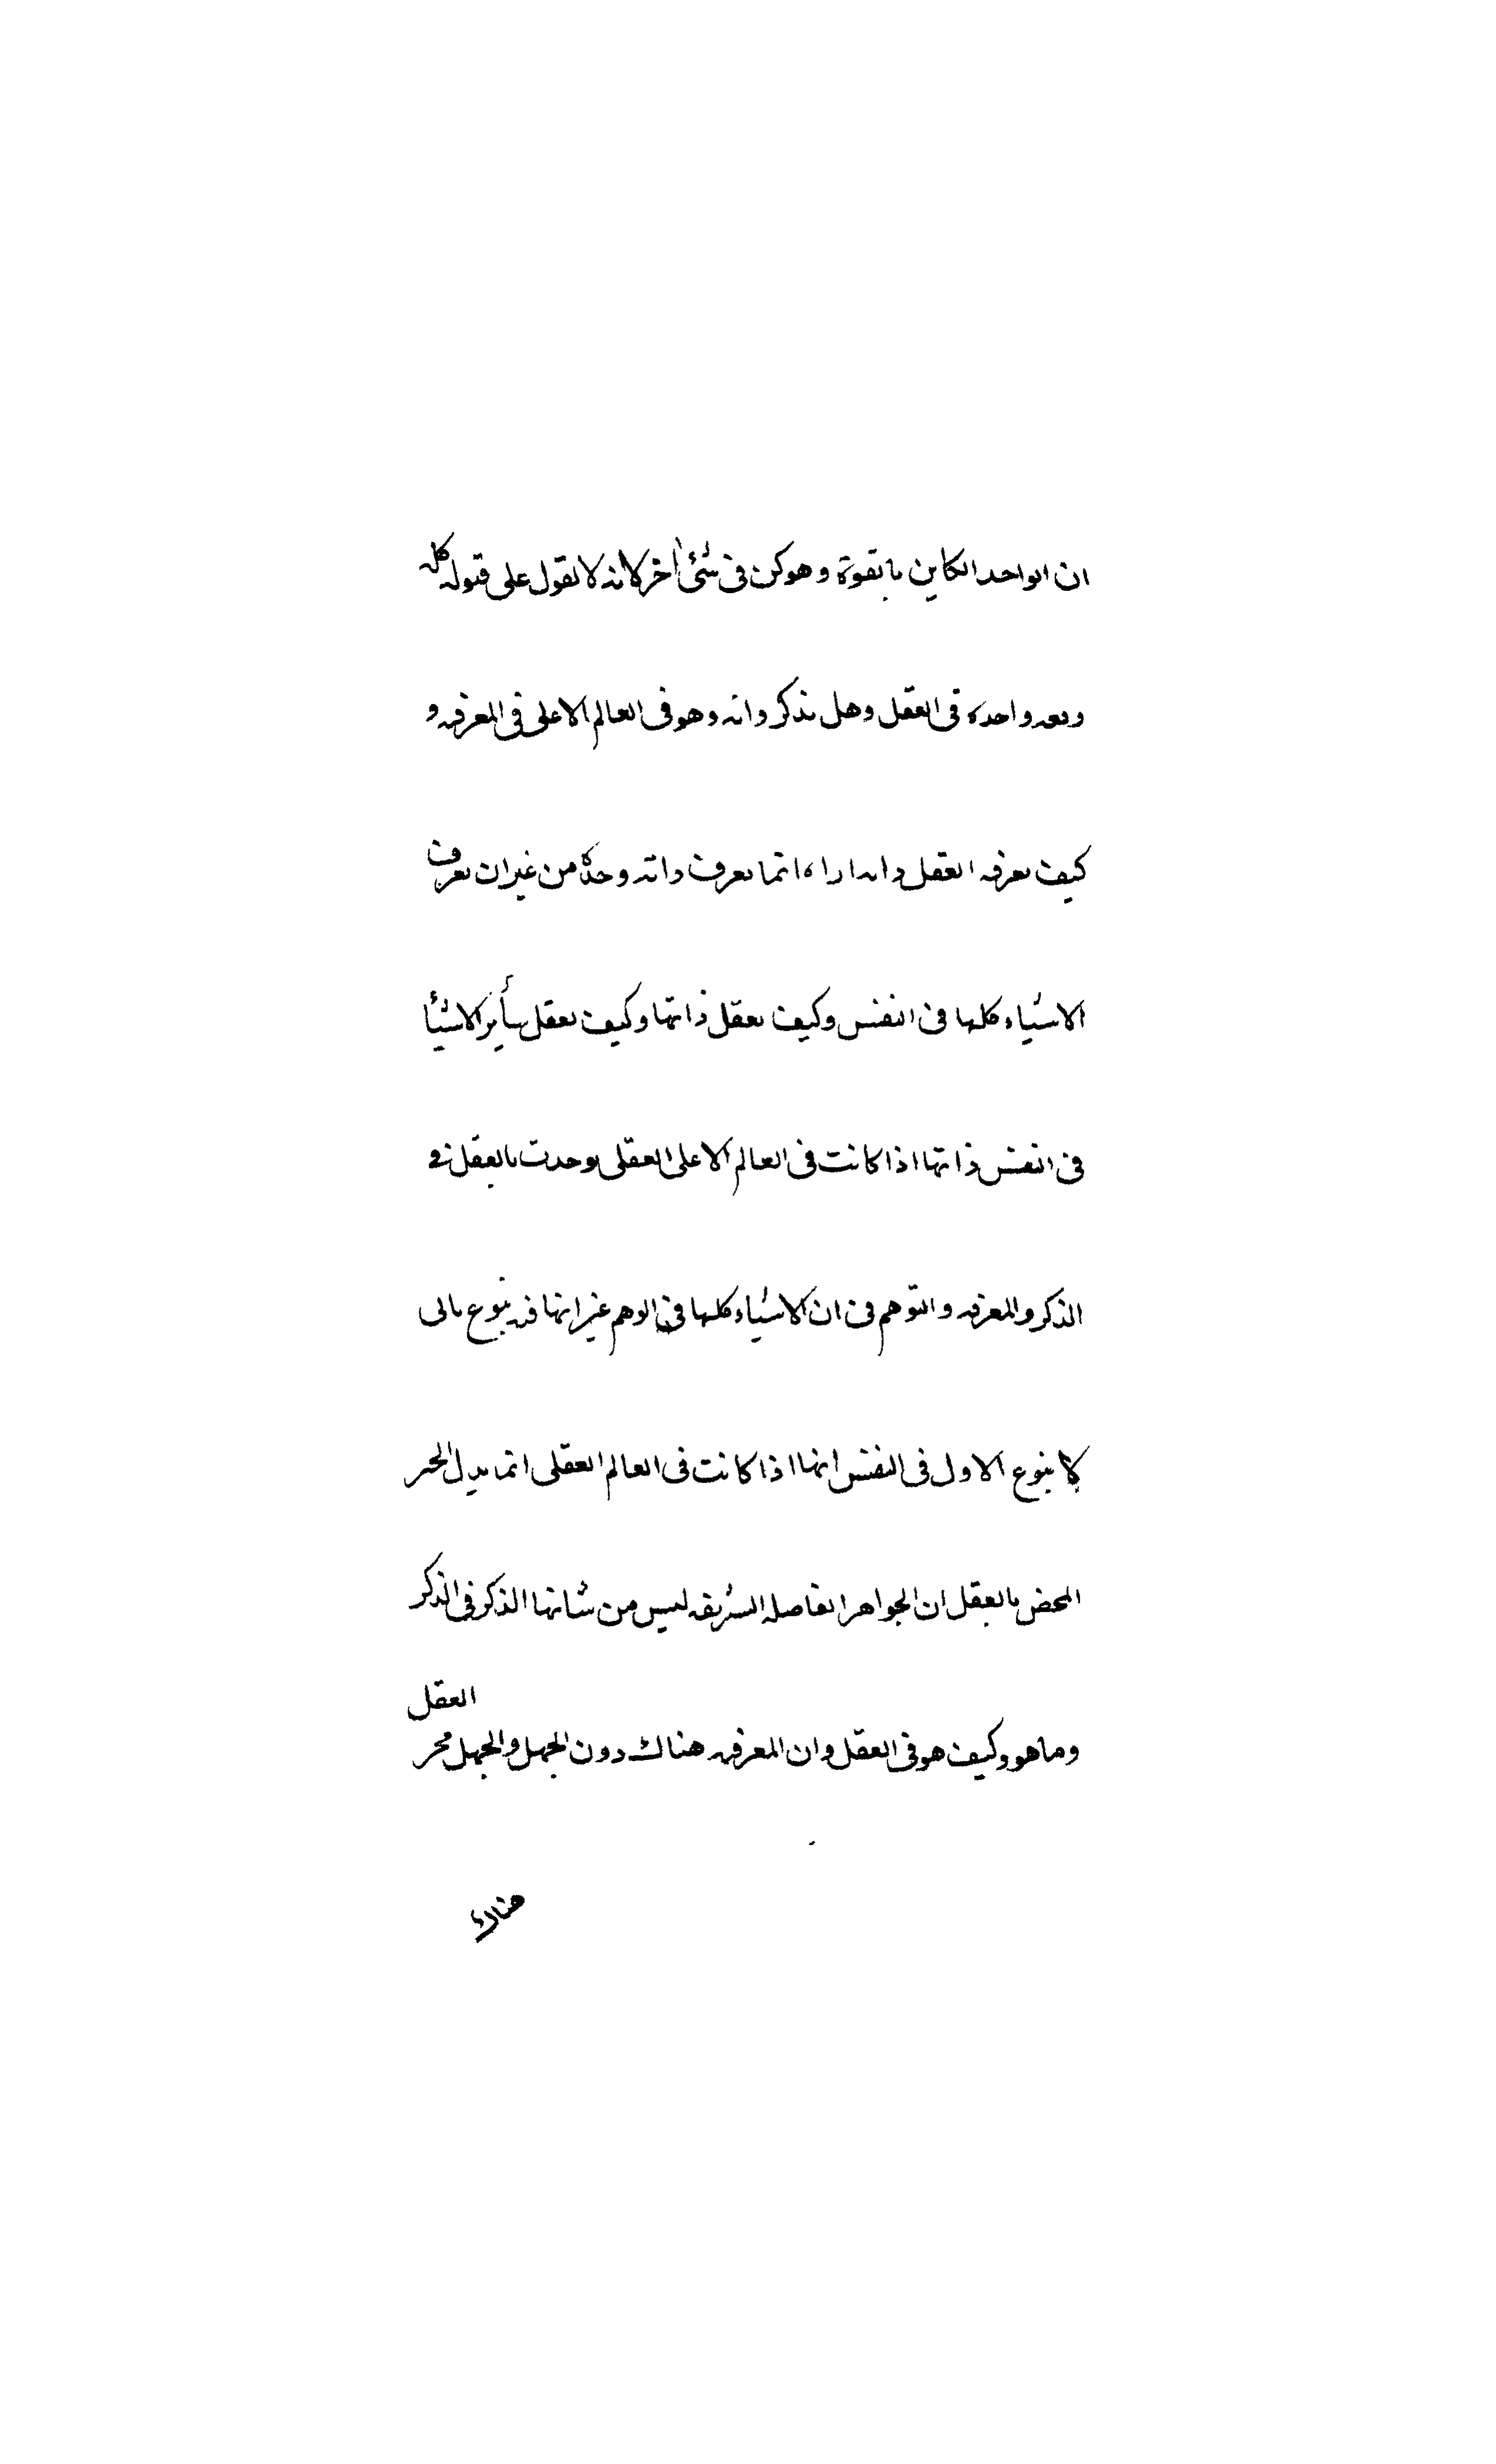 ان الواحد الكاين بالقوة وهو كن فى شئ آخر لانه لا يقول على قبوله كله
دفعه واحده فى العقل وهل يذكر ذاته وهو فى العالم الاعلى فى المعرفه و
كيف يعرف العقل ذاته انما يعرف ذاته وحده من غير ان يعرف
الاشياء كلها فى النفس وكيف تعقل ذاتها وكيف تعقل سأير الاشيأ
فى النفس ذاتها اذا كانت فى العالم الاعلى العقلى توحدت بالعقل فى
الذكر والمعرفه والتوهم فى ان الاشياء كلها فى الوهم غير انها فيه بنوع ثانى
لا بنوع الاول فى النفس انها اذا كانت فى العالم العقلى انما الخير
المحض بالعقل ان الجواهر الفاضله الشريفه ليس من شانها الذكر فى الذكر
العقل
وما هو وكيف هو فى العقل وان المعرفه هناك دون الجهل والجهل فخر
هناك